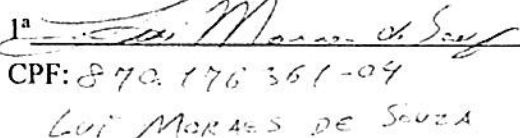 1ª Luí Moraes de Souza
CPF: 870.176 361-04
LUÍ MORAES DE SOUZA